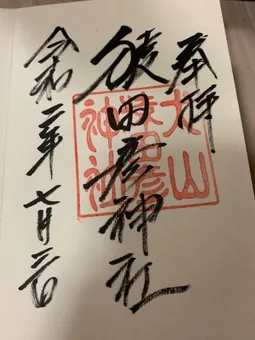 奉拝
猿田彦神社
令和二年七月 日
犬山
猿田彦
神社